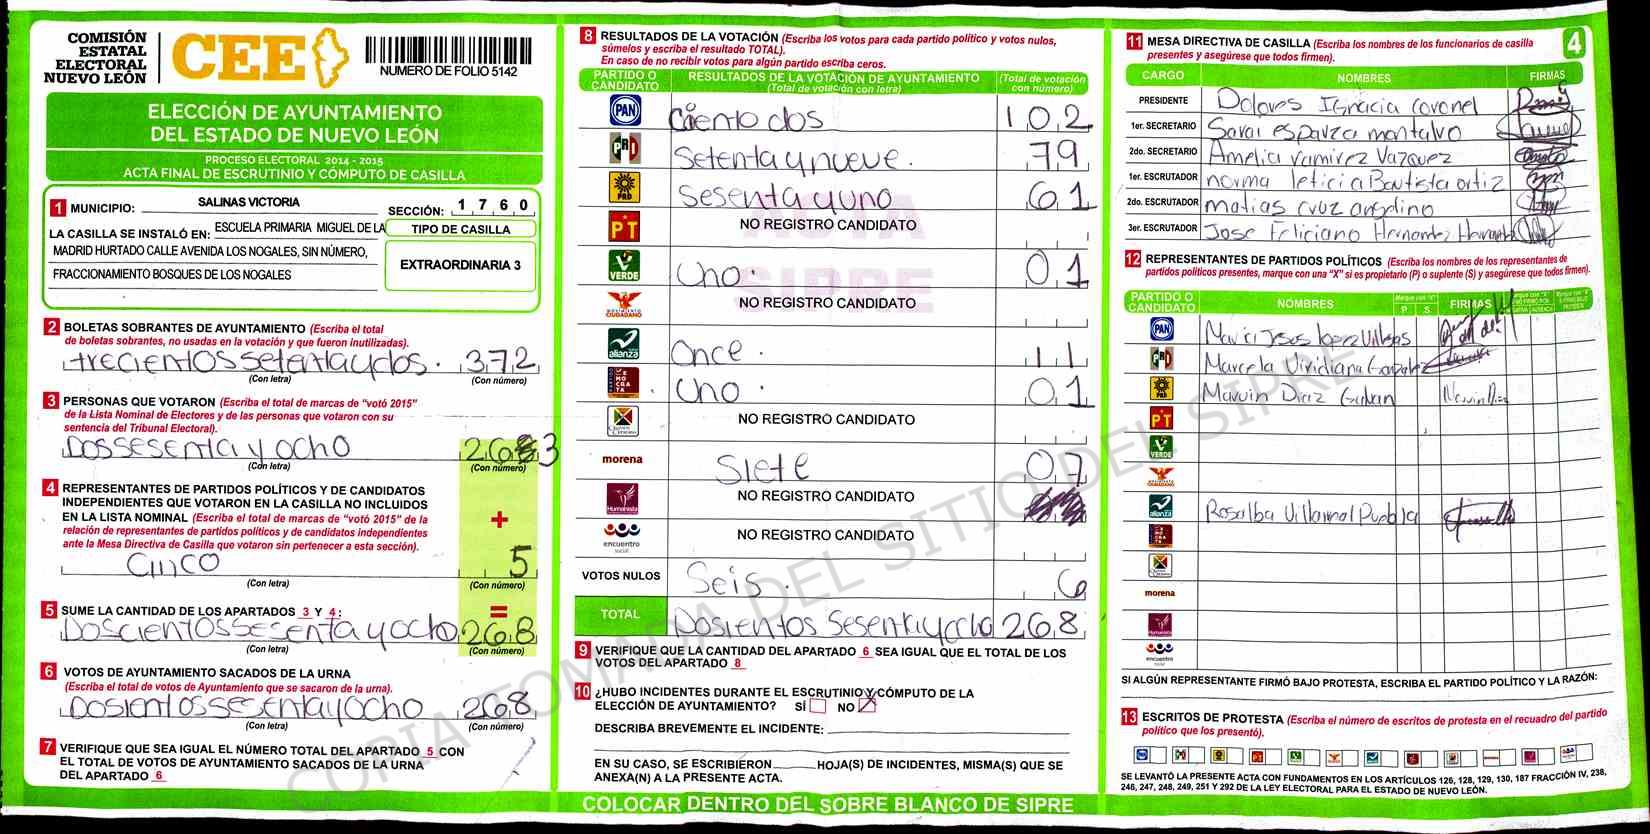 COMISIÓN
ESTATAL
ELECTORAL
NUEVO LEÓN
CEE
NUMERO DE FOLIO 5142
ELECCIÓN DE AYUNTAMIENTO
DEL ESTADO DE NUEVO LEÓN
PROCESO ELECTORAL 2014 - 2015
ACTA FINAL DE ESCRUTINIO Y CÓMPUTO DE CASILLA
1 MUNICIPIO: SALINAS VICTORIA SECCIÓN: 1 7 6 0
LA CASILLA SE INSTALÓ EN: ESCUELA PRIMARIA MIGUEL DE LA
MADRID HURTADO CALLE AVENIDA LOS NOGALES, SIN NÚMERO,
FRACCIONAMIENTO BOSQUES DE LOS NOGALES
TIPO DE CASILLA
EXTRAORDINARIA 3
2 BOLETAS SOBRANTES DE AYUNTAMIENTO (Escriba el total
de boletas sobrantes, no usadas en la votación y que fueron inutilizadas).
trecientos setenta y dos. 372
(Con letra) (Con número)
3 PERSONAS QUE VOTARON (Escriba el total de marcas de "votó 2015"
de la Lista Nominal de Electores y de las personas que votaron con su
sentencia del Tribunal Electoral).
Dos sesenta y ocho 263
(Con letra) (Con número)
4 REPRESENTANTES DE PARTIDOS POLÍTICOS Y DE CANDIDATOS
INDEPENDIENTES QUE VOTARON EN LA CASILLA NO INCLUIDOS
EN LA LISTA NOMINAL (Escriba el total de marcas de "votó 2015" de la
relación de representantes de partidos políticos y de candidatos independientes
ante la Mesa Directiva de Casilla que votaron sin pertenecer a esta sección).
+
Cinco 5
(Con letra) (Con número)
=
5 SUME LA CANTIDAD DE LOS APARTADOS 3 Y 4:
Doscientos sesenta y ocho 268
(Con letra) (Con número)
6 VOTOS DE AYUNTAMIENTO SACADOS DE LA URNA
(Escriba el total de votos de Ayuntamiento que se sacaron de la urna).
Dosientos sesenta y ocho 268
(Con letra) (Con número)
7 VERIFIQUE QUE SEA IGUAL EL NÚMERO TOTAL DEL APARTADO 5 CON
EL TOTAL DE VOTOS DE AYUNTAMIENTO SACADOS DE LA URNA
DEL APARTADO 6
8 RESULTADOS DE LA VOTACIÓN (Escriba los votos para cada partido político y votos nulos,
súmelos y escriba el resultado TOTAL).
En caso de no recibir votos para algún partido escriba ceros.
PARTIDO O CANDIDATO RESULTADOS DE LA VOTACIÓN DE AYUNTAMIENTO (Total de votación con letra) (Total de votación con número)
PAN Ciento dos 102
PRI Setenta y nueve. 79
PRD Sesenta y uno 61
PT NO REGISTRO CANDIDATO
VERDE Uno. 01
MOVIMIENTO CIUDADANO NO REGISTRO CANDIDATO
alianza Once. 11
DEMOCRATA Uno. 01
NO REGISTRO CANDIDATO
morena Siete 07
Humanista NO REGISTRO CANDIDATO
encuentro social NO REGISTRO CANDIDATO
VOTOS NULOS Seis. 6
TOTAL Dosientos sesenta y ocho 268
9 VERIFIQUE QUE LA CANTIDAD DEL APARTADO 6 SEA IGUAL QUE EL TOTAL DE LOS
VOTOS DEL APARTADO 8
10 ¿HUBO INCIDENTES DURANTE EL ESCRUTINIO Y CÓMPUTO DE LA
ELECCIÓN DE AYUNTAMIENTO? SÍ NO X
DESCRIBA BREVEMENTE EL INCIDENTE:
EN SU CASO, SE ESCRIBIERON HOJA(S) DE INCIDENTES, MISMA(S) QUE SE
ANEXA(N) A LA PRESENTE ACTA.
COLOCAR DENTRO DEL SOBRE BLANCO DE SIPRE
11 MESA DIRECTIVA DE CASILLA (Escriba los nombres de los funcionarios de casilla
presentes y asegúrese que todos firmen).
4
CARGO NOMBRES FIRMAS
PRESIDENTE Dolores Ignacia coronel
1er. SECRETARIO Sarai esparza montalvo
2do. SECRETARIO Amelia ramirez Vazquez
1er. ESCRUTADOR norma leticia Bautista ortiz
2do. ESCRUTADOR matias cruz angelino
3er. ESCRUTADOR Jose Feliciano Hernandez Hernandez
12 REPRESENTANTES DE PARTIDOS POLÍTICOS (Escriba los nombres de los representantes de
partidos políticos presentes, marque con una "X" si es propietario (P) o suplente (S) y asegúrese que todos firmen).
PARTIDO O CANDIDATO NOMBRES P S FIRMAS
PAN Maria Jesus lopez Villegas
PRI Marcela Viridiana Gonzalez
PRD Marvin Diaz Galvan
PT
VERDE
MOVIMIENTO CIUDADANO
alianza Rosalba Villarreal Puebla
morena
Humanista
encuentro social
SI ALGÚN REPRESENTANTE FIRMÓ BAJO PROTESTA, ESCRIBA EL PARTIDO POLÍTICO Y LA RAZÓN:
13 ESCRITOS DE PROTESTA (Escriba el número de escritos de protesta en el recuadro del partido
político que los presentó).
SE LEVANTÓ LA PRESENTE ACTA CON FUNDAMENTOS EN LOS ARTÍCULOS 126, 128, 129, 130, 187 FRACCIÓN IV, 238,
246, 247, 248, 249, 251 Y 292 DE LA LEY ELECTORAL PARA EL ESTADO DE NUEVO LEÓN.
COPIA TOMADA DEL SITIO DEL SIPRE